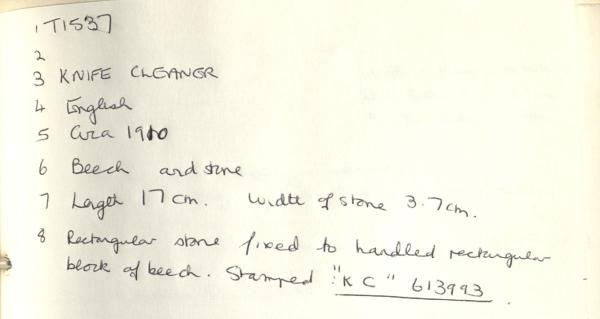 1 T1537
2
3 KNIFE CLEANER
4 English
5 Circa 1910
6 Beech and stone
7 Length 17 cm. Width of stone 3.7cm.
8 Rectangular stone fixed to handled rectangular
block of beech. Stamped "K C" 613993.